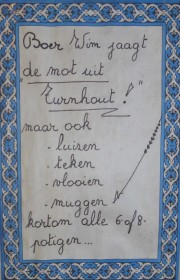 Boer Wim jaagt
"de mot uit
Turnhout!"
maar ook
- luizen
- teken
- vlooien
- muggen
kortom alle 6 of 8 -
potigen...